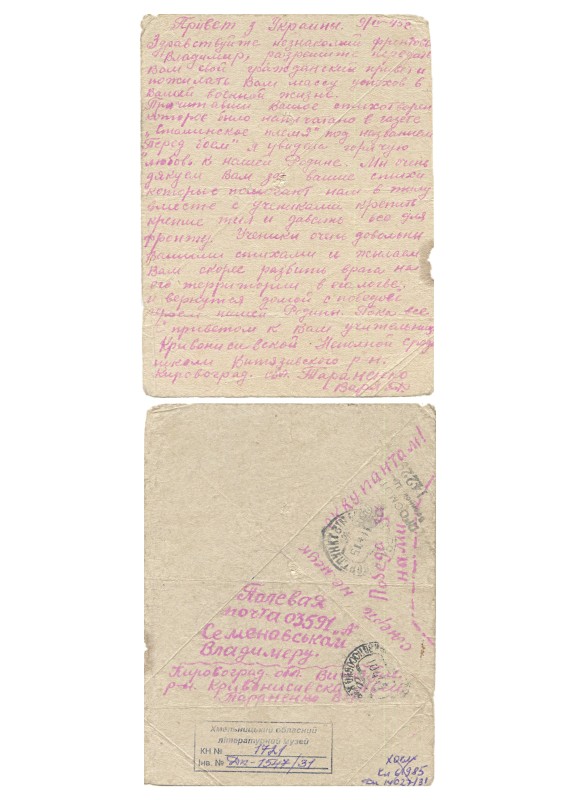 Привет з Украины. 9/IV-45г
Здравствуйте незнакомий фронтов
Владимир, разрешите передат
Вам свой гражданский привет и
пожилать Вам массу успхов в
Вашей военной жизне.
Прочитавши Ваше стихотворен
которое било напечатано в газете
„Сталинское племя" под названием
"Перед боем" я увидела горячую
"любовь к нашей Родине. Ми очень
дякуем Вам за ваши стихи
которые помогают нам в тылу
вместе с учениками крепить
крепше тыл и давать всо для
фронту. Ученики очень довольни
Вашими стихами и жылаем
Вам скорее разбить врага на
его территории в его логве,
и вернутся домой с победою
нашей Родини. Пока все
с приветом к Вам учительница
Кривонисивской - Неполной сред
школи Витязивского р-н.
Кировоград. обл. Тараненко
Валя
оккупантам!
Смерть
не нец
Победа за
нами
Полевая
почта 03591 "А"
Семенавськом
Владимеру.
Кировоград обл. Ви
р-н Кривонисивска
Тараненко В
Хмельницький обласний
літературний музей
КН № 1721
Інв. № Дп-1547/31
ХОЛМ
Кл 61985
14027/31